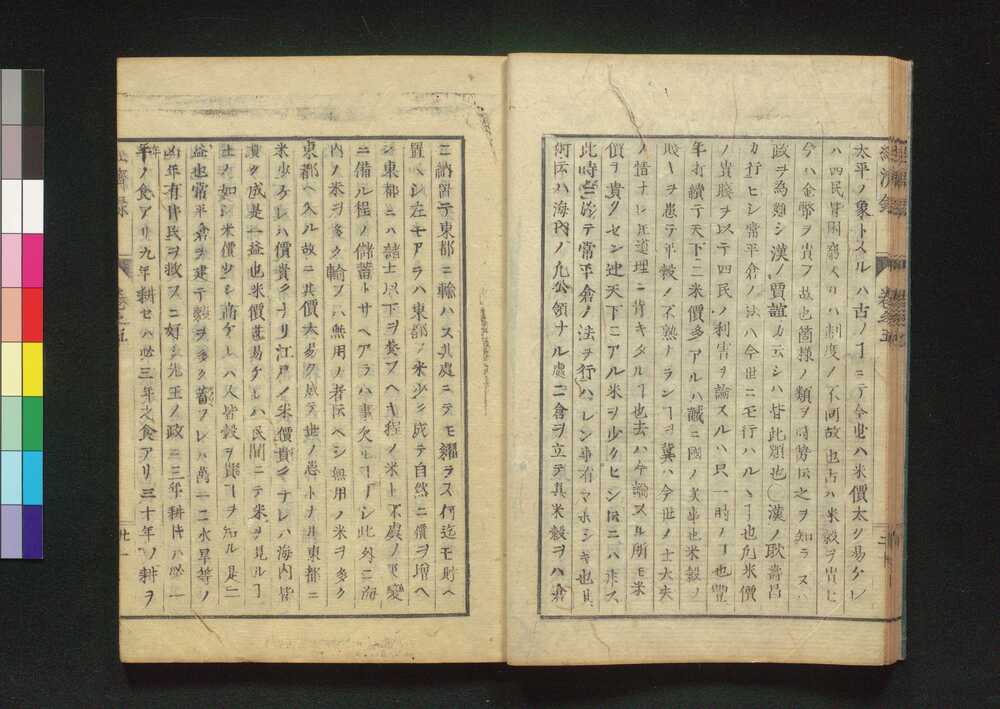 太平ノ象トスルハ古ノヿニテ今世ハ米價太タ易ケレ
ハ四民皆困窮スルハ制度ノ不同故也古ハ米穀ヲ貴ヒ
今ハ金幣ヲ貴フ故也箇樣ノ類ヲ時勢ト云之ヲ知ラスハ
政ヲ為難シ漢ノ賈誼カ云シハ皆此類也〇漢ノ耿壽昌
カ行ヒシ常平倉ノ法ハ今世ニモ行ハルヽヿ也凢米價
ノ貴賤ヲ以テ四民ノ利害ヲ論スルハ只一時ノヿ也豐
年打續テ天下ニ米價多アルハ誠ニ國ノ美事也米穀ノ
賤ーヲ患テ年穀ノ不熟ナランヿヲ冀ハ今世ノ士大夫
ノ情ナレ𪜈道理ニ背キタルヿ也去ハ今論スル所モ米
價ヲ貴クセン迚天下ニアル米ヲ少クヒシ𪜈ニハ非ス
此時ニ於テ常平倉ノ法ヲ行ハレン事有マホシキ也其
何ト云ハ海內ノ凢公領ナル處ニ倉ヲ立テ其米穀ヲハ倉
ニ納置テ東都ニ輸ハス其處ニテモ糶ラス何迄モ貯ヘ
置ヘシ左モアラハ東都ノ米少ク成テ自然ニ價ヲ增ヘ
シ東都ニハ諸士以下ヲ養フヘキ程ノ米ト不虞ノ事變
ニ備ル程ノ儲蓄トサヘアラハ事欠マシキヿ也此外ニ海
內ノ米ヲ多ク輸フハ無用ノ者ト云ヘシ無用ノ米ヲ多ク
東都ヘ入ル故ニ其價太易ク成テ世ノ患トナル東都ニ
米少ケレハ價貴クナリ江戶ノ米價貴クナレハ海內皆
貴ク成是一益也米價甚易ケレハ民間ニテ米ヲ見ルヿ
土ノ如シ米價少シ高ケレハ人皆穀ヲ貴フヿヲ知ル是二
益也常平倉ヲ建テ穀ヲ多ク蓄フレハ萬一ニ水旱等ノ
凶年有片民ヲ救フニ好シ先王ノ政ニ三年耕セハ必一
年ノ食アリ九年耕セハ必三年之食アリ三十年ノ耕ヲ
經濟錄
卷之五
廿一